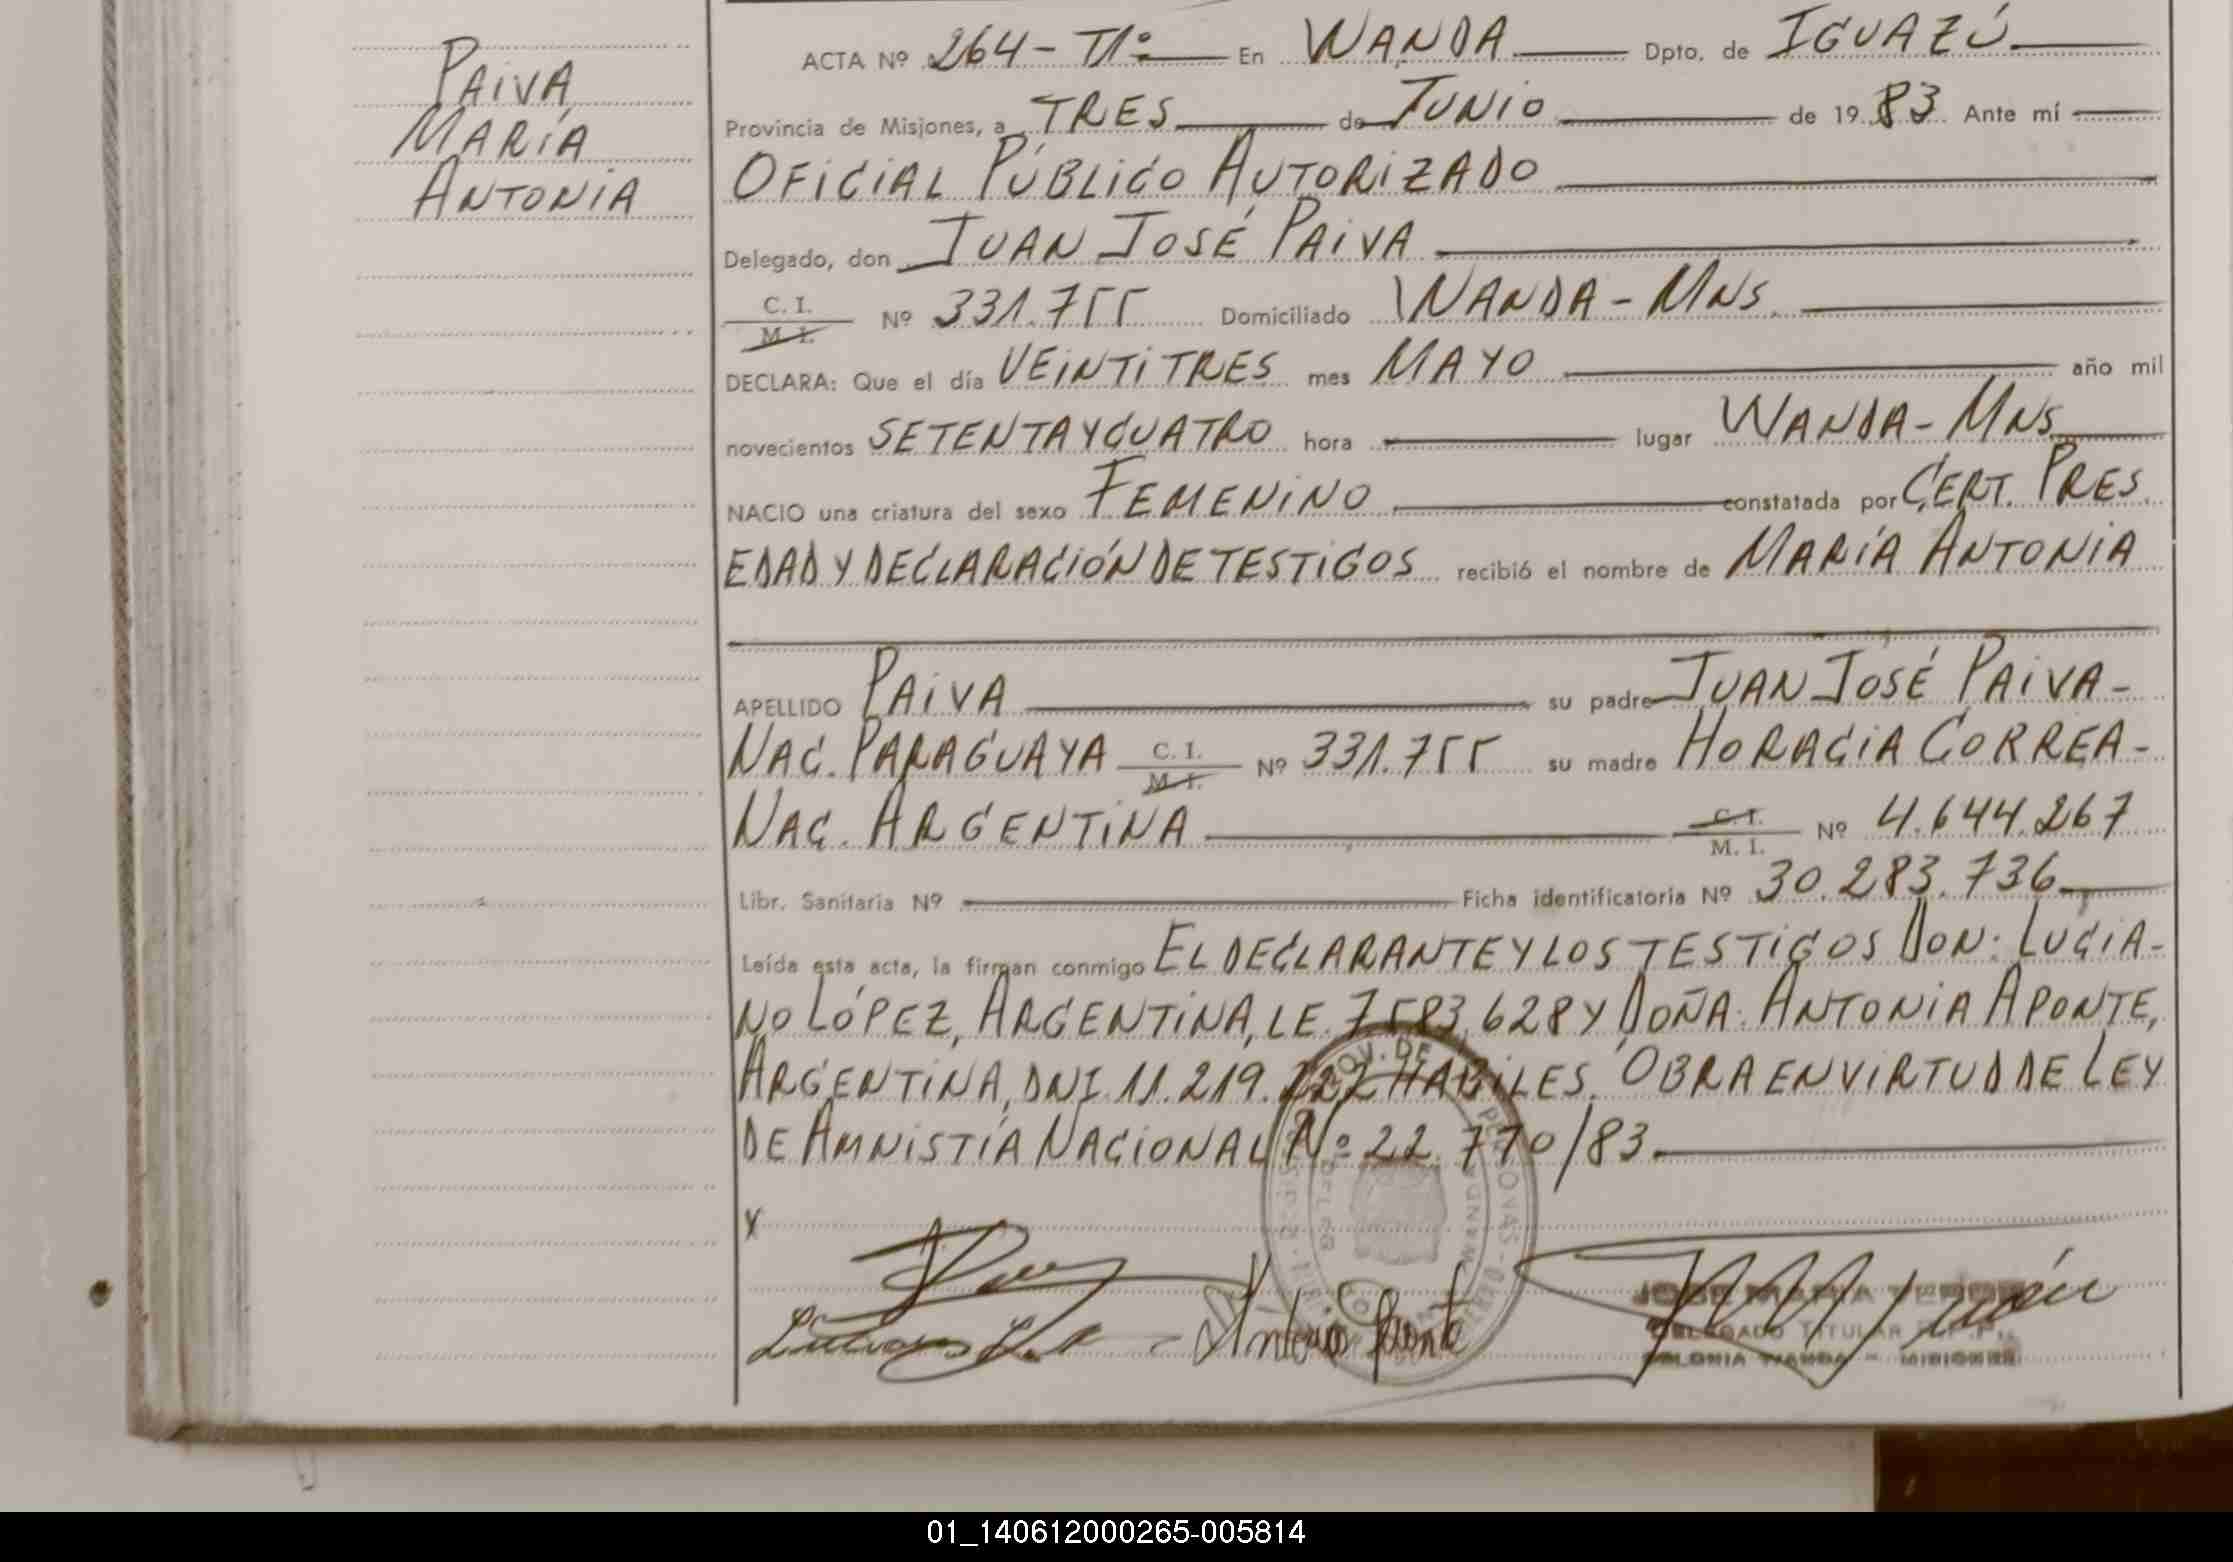 PAIVA
MARÍA
ANTONIA
ACTA Nº 264 - T1º En WANDA Dpto. de IGUAZÚ
Provincia de Misiones, a TRES de JUNIO de 1983 Ante mí
OFICIAL PÚBLICO AUTORIZADO
Delegado, don JUAN JOSÉ PAIVA
C. I.
M. I. Nº 331.755 Domiciliado WANDA - MNS.
DECLARA: Que el día VEINTITRES mes MAYO año mil
novecientos SETENTA Y CUATRO hora lugar WANDA - MNS
NACIO una criatura del sexo FEMENINO constatada por CERT. PRES
EDAD Y DECLARACIÓN DE TESTIGOS recibió el nombre de MARÍA ANTONIA
APELLIDO PAIVA su padre JUAN JOSÉ PAIVA -
NAC. PARAGUAYA C. I. M. I. Nº 331.755 su madre HORACIA CORREA -
NAC. ARGENTINA C. I. M. I. Nº 4.644.267
Libr. Sanitaria Nº Ficha identificatoria Nº 30.283.736
Leída esta acta, la firman conmigo EL DECLARANTE Y LOS TESTIGOS DON: LUCIA-
NO LÓPEZ, ARGENTINA, LE. 7.583.628 Y DOÑA: ANTONIA APONTE,
ARGENTINA, DNI 11.219.222 HABILES. OBRA EN VIRTUD DE LEY
DE AMNISTÍA NACIONAL Nº 22.770/83
X
Antonia Aponte
JOSE MARIA
DELEGADO TITULAR
COLONIA WANDA - MISIONES
01_140612000265-005814